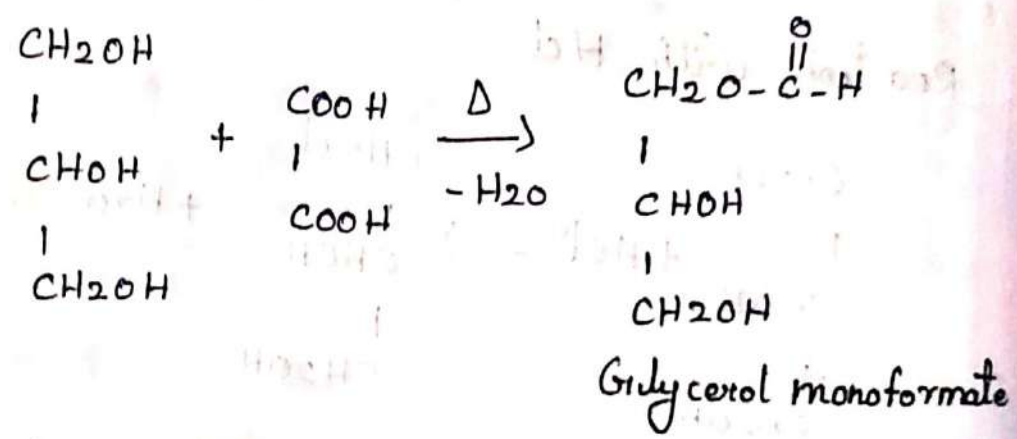 CH2OH
|
CHOH
|
CH2OH
+
COOH
|
COOH
Δ
→
- H2O
O
||
CH2O-C-H
|
CHOH
|
CH2OH
Glycerol monoformate